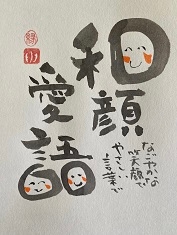 和顔
愛語
なごやかな
笑顔で
やさしい
言葉で